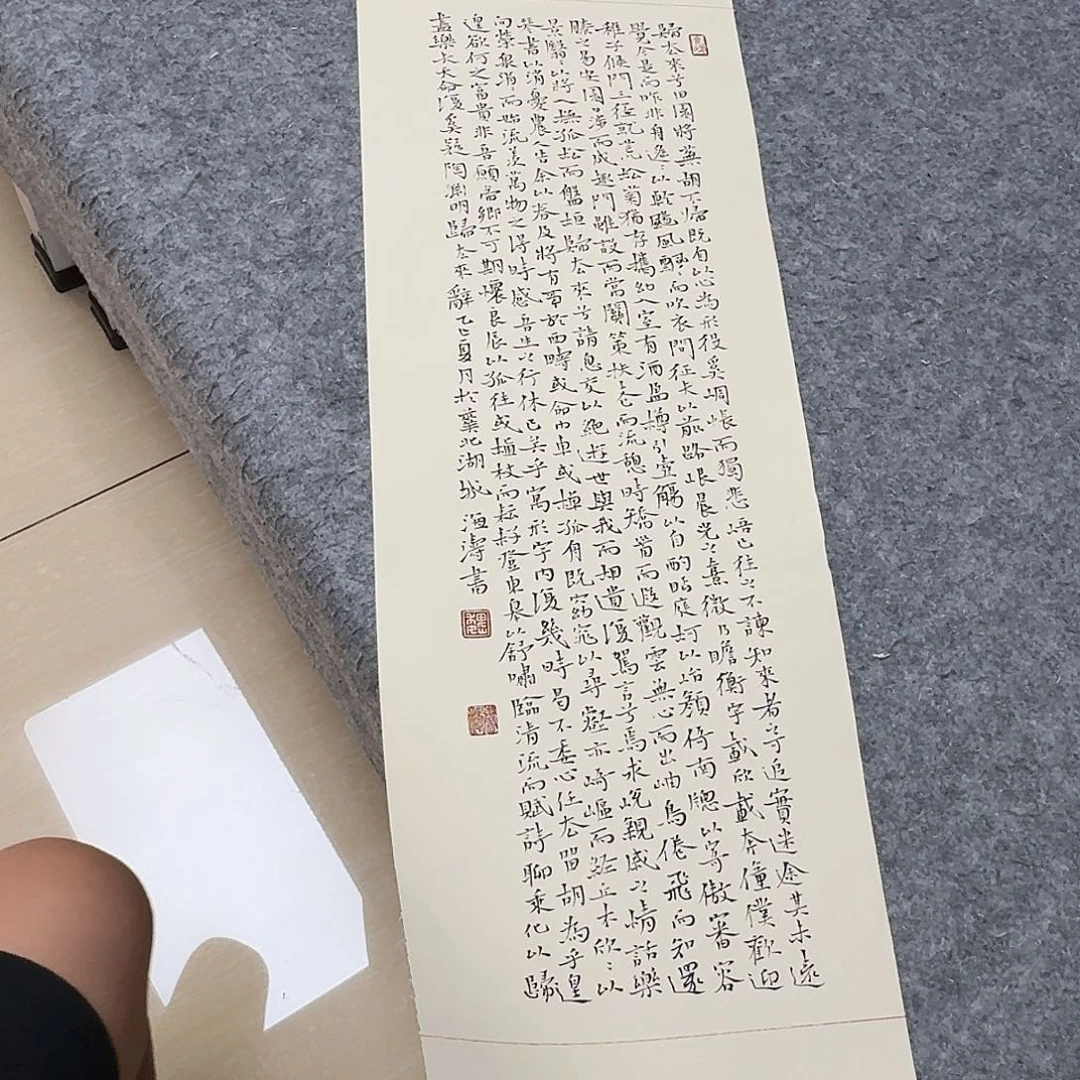 歸去來兮田園將蕪胡不歸既自以心為形役奚惆悵而獨悲悟已往之不諫知來者之可追實迷途其未遠
覺今是而昨非舟遙〻以輕颺風飄〻而吹衣問征夫以前路恨晨光之熹微乃瞻衡宇載欣載奔僮僕歡迎
稚子候門三徑就荒松菊猶存攜幼入室有酒盈樽引壺觴以自酌眄庭柯以怡顏倚南窗以寄傲審容
膝之易安園日涉而成趣門雖設而常關策扶老而流憩時矯首而遐觀雲無心而出岫鳥倦飛而知還
景翳〻以將入撫孤松而盤桓歸去來兮請息交以絕遊世與我而相遺復駕言兮焉求悅親戚之情話樂
琴書以消憂農人告余以春及將有事於西疇或命巾車或棹孤舟既窈窕以尋壑亦崎嶇而經丘木欣〻以
向榮泉涓〻而始流羨萬物之得時感吾生之行休已矣乎寓形宇內復幾時曷不委心任去留胡為乎遑
遑欲何之富貴非吾願帝鄉不可期懷良辰以孤往或植杖而耘耔登東皋以舒嘯臨清流而賦詩聊乘化以歸
盡樂夫天命復奚疑陶淵明歸去來辭乙巳夏月於冀北湖城 海濤書